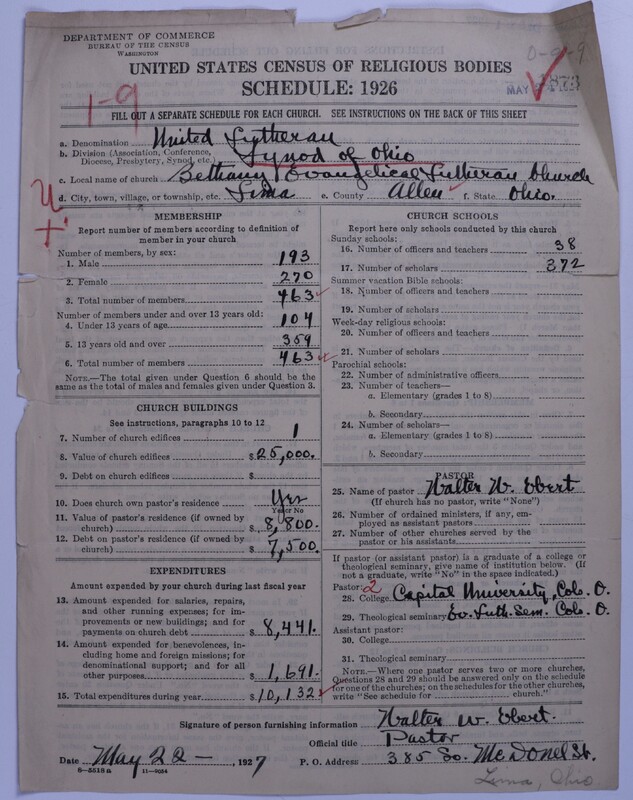 DEPARTMENT OF COMMERCE
BUREAU OF THE CENSUS
WASHINGTON
UNITED STATES CENSUS OF RELIGIOUS BODIES
SCHEDULE: 1926
0-9-9
MAY
1-9
FILL OUT A SEPARATE SCHEDULE FOR EACH CHURCH. SEE INSTRUCTIONS ON THE BACK OF THIS SHEET
a. Denomination United Lutheran
b. Division (Association, Conference, Diocese, Presbytery, Synod, etc.) Synod of Ohio
c. Local name of church Bethany Evangelical Lutheran Church
d. City, town, village, or township, etc. Lima e. County Allen f. State Ohio.
U
+
MEMBERSHIP
Report number of members according to definition of member in your church
Number of members, by sex:
1. Male 193
2. Female 270
3. Total number of members 463
Number of members under and over 13 years old:
4. Under 13 years of age 104
5. 13 years old and over 359
6. Total number of members 463
NOTE.—The total given under Question 6 should be the same as the total of males and females given under Question 3.
CHURCH BUILDINGS
See instructions, paragraphs 10 to 12
7. Number of church edifices 1
8. Value of church edifices $25,000.
9. Debt on church edifices $
10. Does church own pastor's residence Yes
Yes or No
11. Value of pastor's residence (if owned by church) $8,800.
12. Debt on pastor's residence (if owned by church) $7,500.
EXPENDITURES
Amount expended by church during last fiscal year
13. Amount expended for salaries, repairs, and other running expenses; for improvements or new buildings; and for payments on church debt $8,441.
14. Amount expended for benevolences, including home and foreign missions; for denominational support; and for all other purposes $1,691.
15. Total expenditures during year $10,132
CHURCH SCHOOLS
Report here only schools conducted by this church
Sunday schools:
16. Number of officers and teachers 38
17. Number of scholars 372
Summer vacation Bible schools:
18. Number of officers and teachers
19. Number of scholars
Week-day religious schools:
20. Number of officers and teachers
21. Number of scholars
Parochial schools:
22. Number of administrative officers
23. Number of teachers—
a. Elementary (grades 1 to 8)
b. Secondary
24. Number of scholars—
a. Elementary (grades 1 to 8)
b. Secondary
PASTOR
25. Name of pastor Walter W. Ebert
(If church has no pastor, write "None")
26. Number of ordained ministers, if any, employed as assistant pastors
27. Number of other churches served by the pastor or his assistants
If pastor (or assistant pastor) is a graduate of a college or theological seminary, give name of institution below. (If not a graduate, write "No" in the space indicated.)
Pastor: 2
28. College Capital University, Cols. O.
29. Theological seminary Ev. Luth. Sem. Cols. O.
Assistant pastor:
30. College
31. Theological seminary
NOTE.—Where one pastor serves two or more churches, Questions 28 and 29 should be answered only on the schedule for one of the churches; on the schedules for the other churches, write "See schedule for church."
Signature of person furnishing information Walter W. Ebert.
Official title Pastor
Date May 22 -, 1927 P. O. Address 385 So. McDonel St.
8-5518a 11-9054
Lima, Ohio